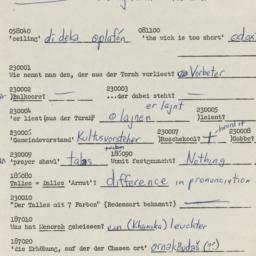 058040 081100
'ceiling' di dekə oplafən 'the wick is too short'
230001
Wie nennt man den, der aus der Torah vorliest? Vorbeter
230002 230003
Balkore? ...der dabei steht?
er lajnt
230004 230005
'er liest (aus der Torah)' o lajnen leient?
230006 230007 230008
'Gemeindevorstand' Kultusvorsteher Roschekool?
230009 186090
'prayer shawl' Womit festgemacht? Nothing
186080
Talles = Dalles 'Armut'? difference in pronunciation
230010
"Der Talles mit 7 Farben" (Redensart bekannt?)
187010
Was hat Menorah geheissen? ein (Khanuka) leuchter
187020
'die Erhöhung, auf der der Chasen ort'